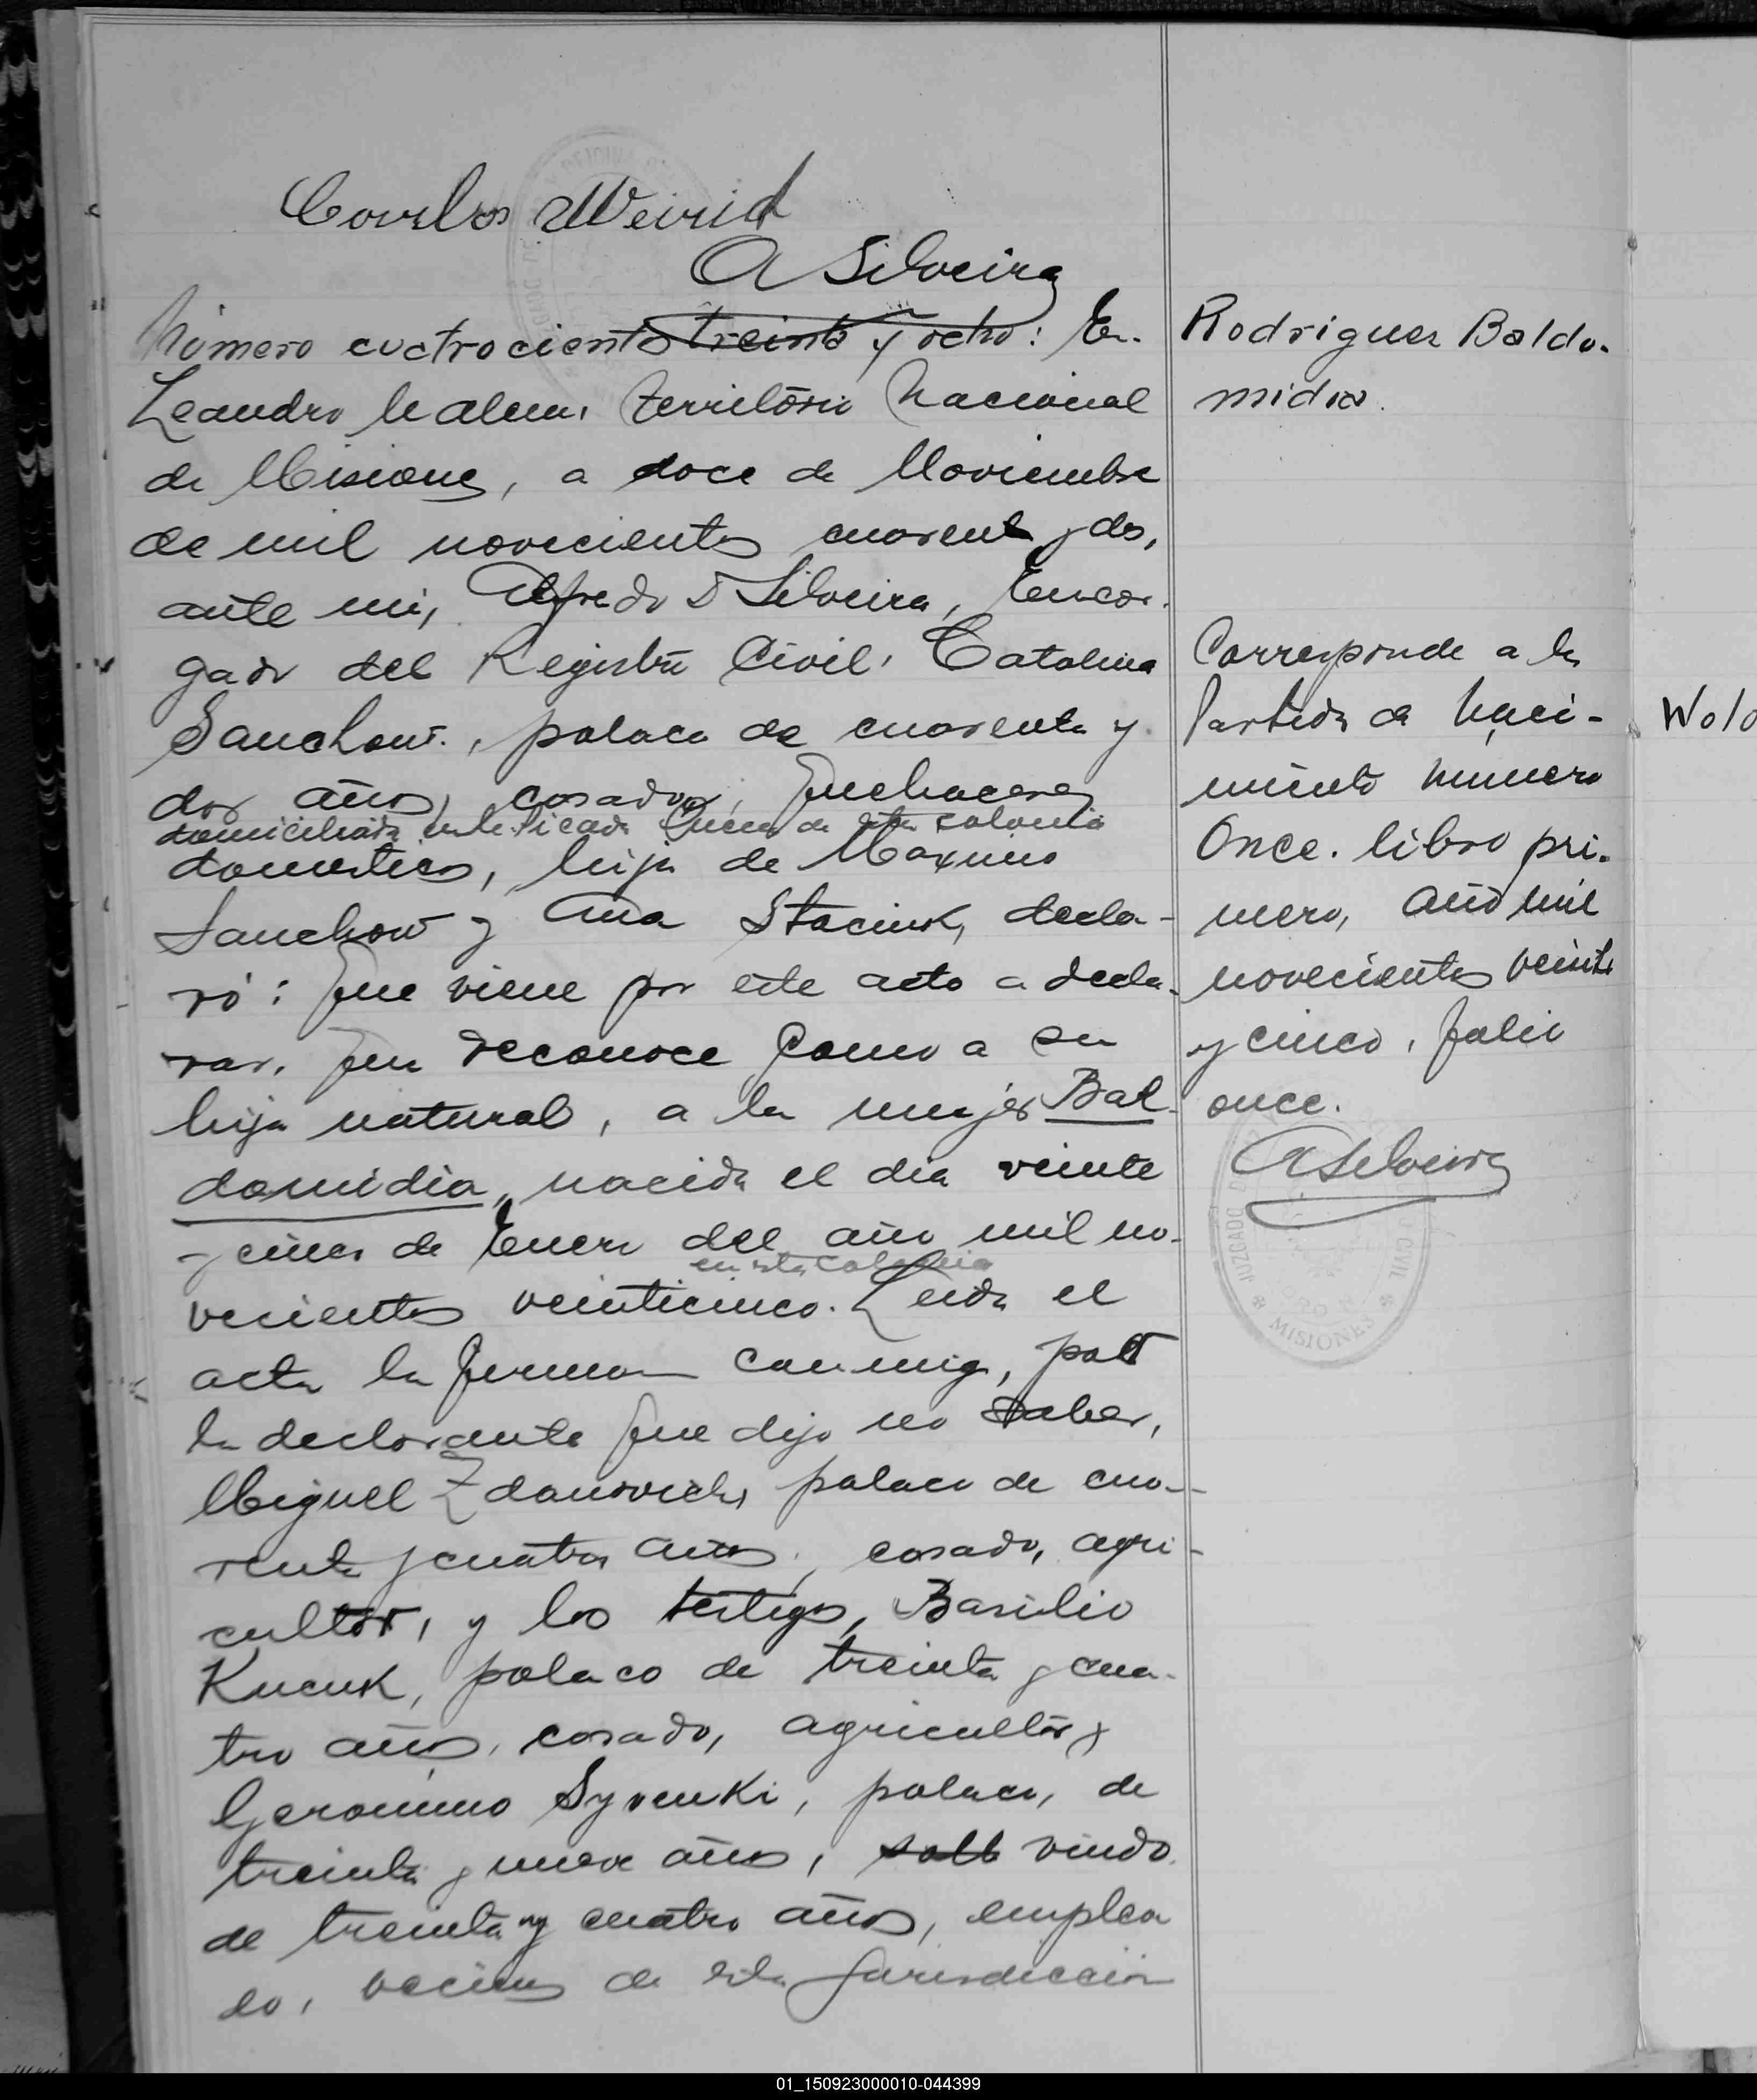 Carlos Weirich
A Silveira
Número cuatrocientos treinta y ocho: En
Leandro N Alem, territorio Nacional
de Misiones, a doce de Noviembre
de mil novecientos cuarent y dos,
ante mi, Alfredo D Silveira, Encar-
gado del Registro Civil, Catalina
Sanchow, polaca de cuarenta y
dos años, casada, quehaceres
domiciliada en la Picada de esta colonia
domesticos, hija de Maximo
Sanchow y Ana Staciuk, decla-
ró: Que viene por este acto a decla-
rar, que reconoce como a su
hija natural, a la mujer Bal
domidia, nacida el dia veinte
y cinco de Enero del año mil no-
en esta Colonia
vecientos veinticinco. Leida el
acta la firman conmigo, por
la declarante que dijo no saber,
Miguel Zdanovich, polaco de cua-
renta y cuatro años, casado, agri-
cultor, y los testigos, Basilio
Kucuk, polaco de treinta y cua-
tro años, casado, agricultor y
Geronimo Syvenki, polaco, de
treinta y nueve años, viudo
de treinta y cuatro años, emplea
do, vecinos de esta jurisdicción
Rodriguez Baldo-
midia.
Corresponde a la
Partida de Naci-
miento número
Once. libro pri-
mero, año mil
novecientos veinte
y cinco, folio
once.
A Silveira
JUZGADO DE CIVIL
MISIONES
Wolo
01_150923000010-044399